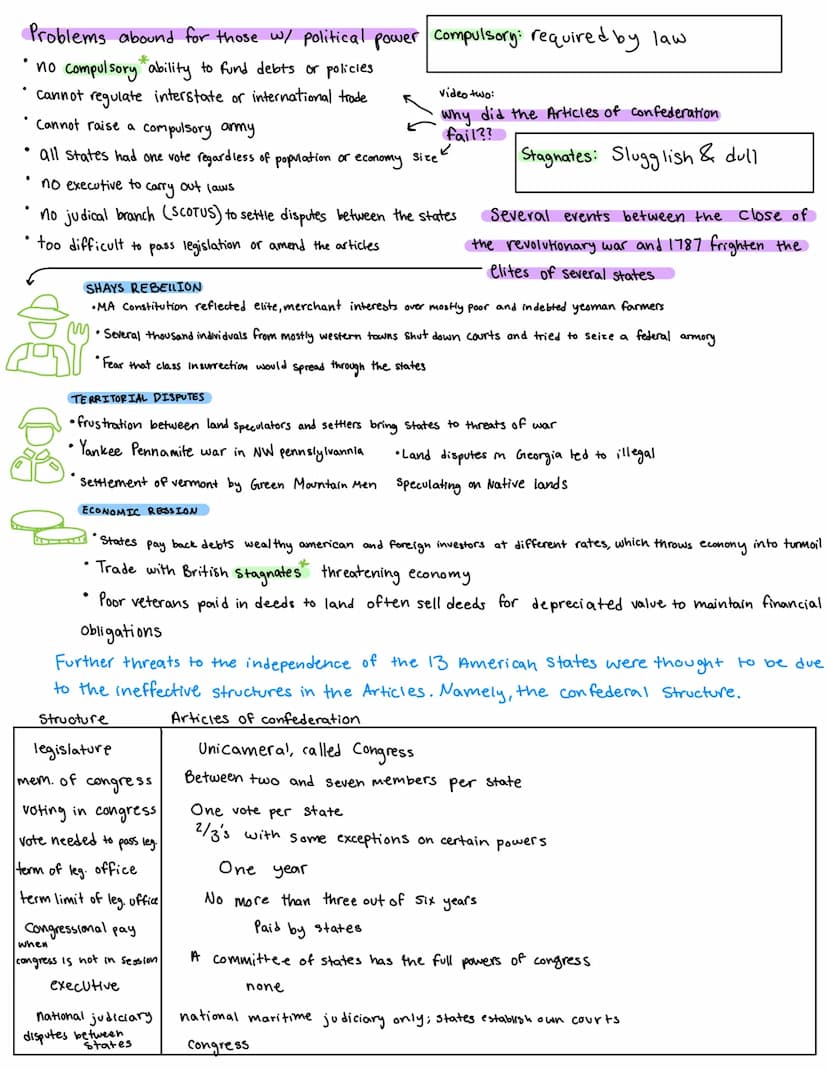 Problems abound for those w/ political power
Compulsory: required by law
• no compulsory* ability to fund debts or policies
• cannot regulate interstate or international trade
• Cannot raise a compulsory army
• all states had one vote regardless of population or economy size
• no executive to carry out laws
• no judical branch (SCOTUS) to settle disputes between the states
• too difficult to pass legislation or amend the articles
Video two:
Why did the Articles of Confederation
fail??
Stagnates: Slugglish & dull
Several events between the close of
the revolutionary war and 1787 frighten the
elites of several states
SHAYS REBELLION
• MA Constitution reflected elite, merchant interests over mostly poor and indebted yeoman farmers
• Several thousand individuals from mostly western towns shut down courts and tried to seize a federal armory
• Fear that class insurrection would spread through the states
TERRITORIAL DISPUTES
• frustration between land speculators and settlers bring states to threats of war
• Yankee Pennamite war in NW pennslylvannia
• Settlement of vermont by Green Mountain Men
• Land disputes in Georgia led to illegal
speculating on Native lands
ECONOMIC RESSION
• States pay back debts wealthy american and foreign investors at different rates, which throws economy into turmoil
• Trade with British Stagnates* threatening economy
• Poor veterans paid in deeds to land often sell deeds for depreciated value to maintain financial
obligations
Further threats to the independence of the 13 American States were thought to be due
to the ineffective structures in the Articles. Namely, the confederal structure.
Structure Articles of confederation
legislature Unicameral, called Congress
mem. of congress Between two and seven members per state
voting in congress One vote per state
vote needed to pass leg. 2/3's with some exceptions on certain powers
term of leg. office One year
term limit of leg. office No more than three out of six years
Congressional pay Paid by states
when
congress is not in session A committee of states has the full powers of congress
executive none
national judiciary national maritime judiciary only; states establish own courts
disputes between
states Congress